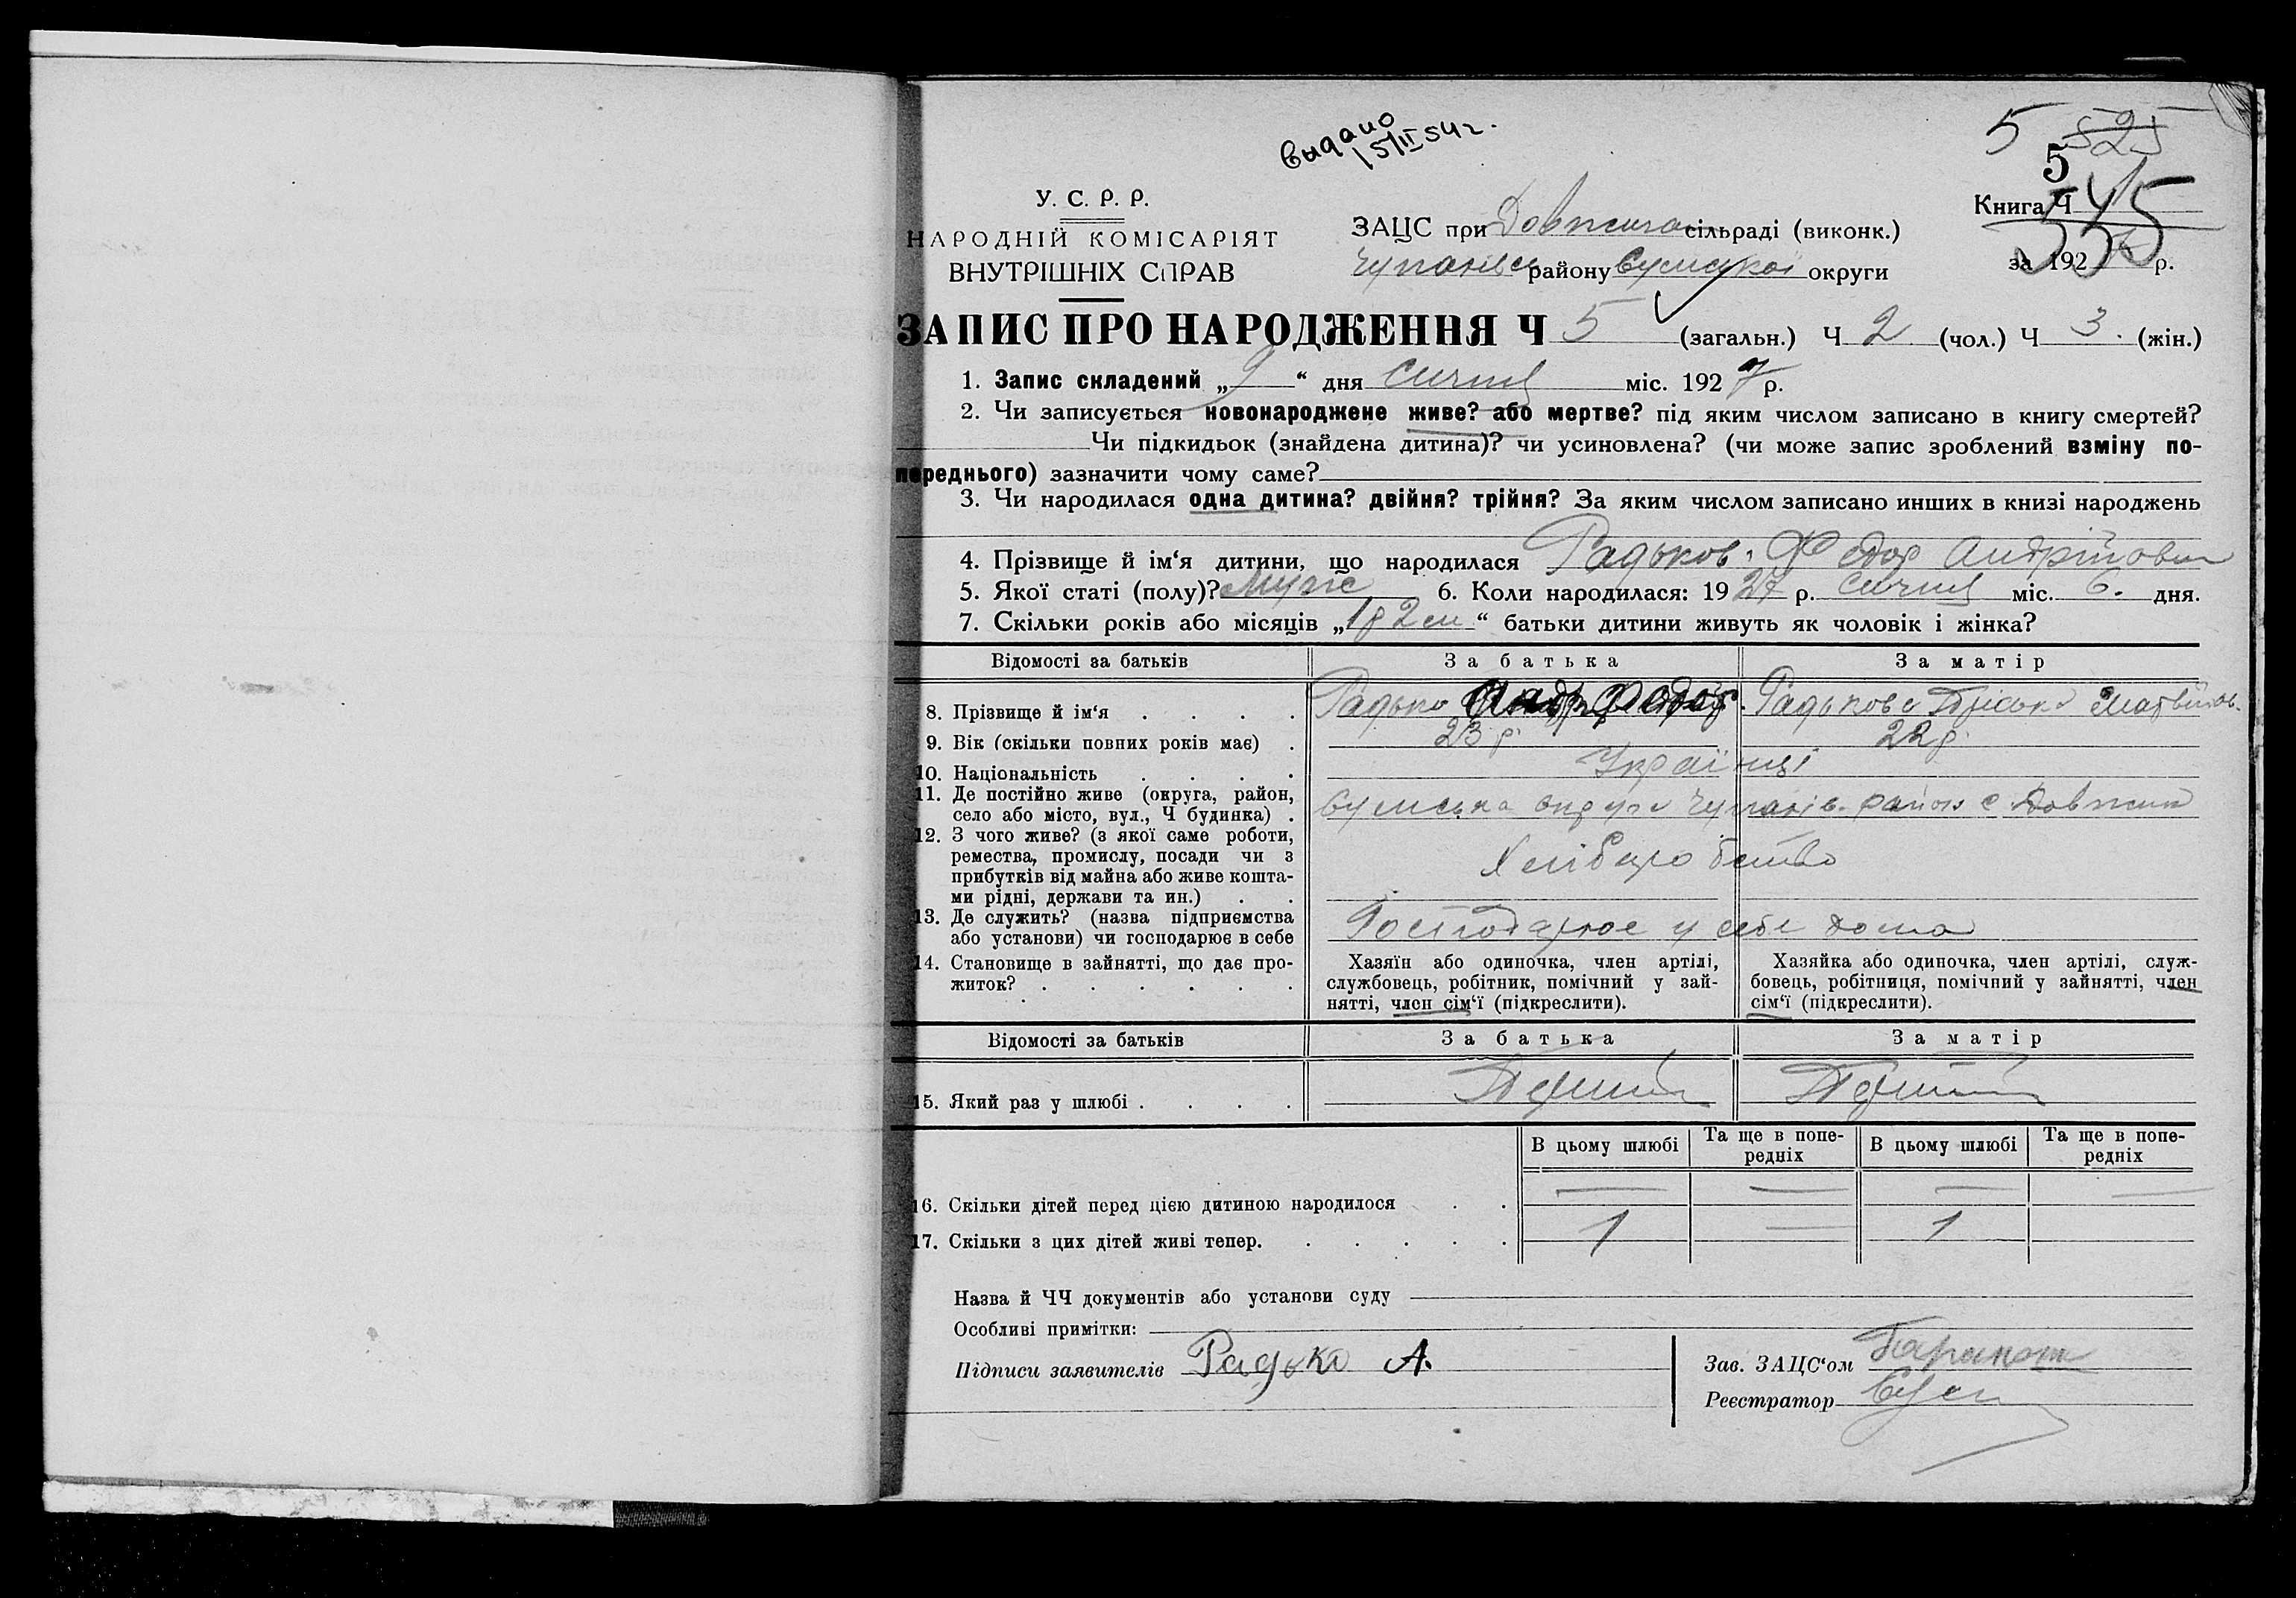 выдано
15/II 54 г.
5 525
5
У. С. Р. Р.
НАРОДНІЙ КОМІСАРІЯТ
ВНУТРІШНІХ СПРАВ
ЗАЦС при сільраді (виконк.)
району Сумської округи
Книга Ч
545
за 192 р.
ЗАПИС ПРО НАРОДЖЕННЯ Ч 5 (загальн.) Ч 2 (чол.) Ч 3. (жін.)
1. Запис складений „9“ дня Січня міс. 1927 р.
2. Чи записується новонароджене живе? або мертве? під яким числом записано в книгу смертей?
Чи підкидьок (знайдена дитина)? чи усиновлена? (чи може запис зроблений взміну по-
переднього) зазначити чому саме?
3. Чи народилася одна дитина? двійня? трійня? За яким числом записано инших в книзі народжень
4. Прізвище й ім‘я дитини, що народилася Радьков Федор Андрійович
5. Якої статі (полу)? Муж 6. Коли народилася: 1927 р. Січня міс. 6. дня.
7. Скільки років або місяців „1 р 2 м“ батьки дитини живуть як чоловік і жінка?
Відомості за батьків За батька За матір
8. Прізвище й ім‘я . . . . Радько Радькова
9. Вік (скільки повних років має) . 23 р. 22 р.
10. Національність . . . . Українці
11. Де постійно живе (округа, район,
село або місто, вул., Ч будинка) . Сумська округа район с.
12. З чого живе? (з якої саме роботи,
ремества, промислу, посади чи з
прибутків від майна або живе кошта-
ми рідні, держави та ин.) . .
Хлібороботво
13. Де служить? (назва підприємства
або установи) чи господарює в себе
Господарює у себе дома
14. Становище в зайнятті, що дає про-
житок? . . . . . .
Хазяїн або одиночка, член артілі,
службовець, робітник, помічний у зай-
нятті, член сім‘ї (підкреслити).
Хазяйка або одиночка, член артілі, служ-
бовець, робітниця, помічний у зайнятті, член
сім‘ї (підкреслити).
Відомості за батьків За батька За матір
15. Який раз у шлюбі . . . . Перший Перший
В цьому шлюбі Та ще в попе-
редніх В цьому шлюбі Та ще в попе-
редніх
16. Скільки дітей перед цією дитиною народилося . . — — — —
17. Скільки з цих дітей живі тепер. . . . . . 1 — 1
Назва й ЧЧ документів або установи суду
Особливі примітки:
Підписи заявителів Радько А.
Зав. ЗАЦС‘ом
Реєстратор